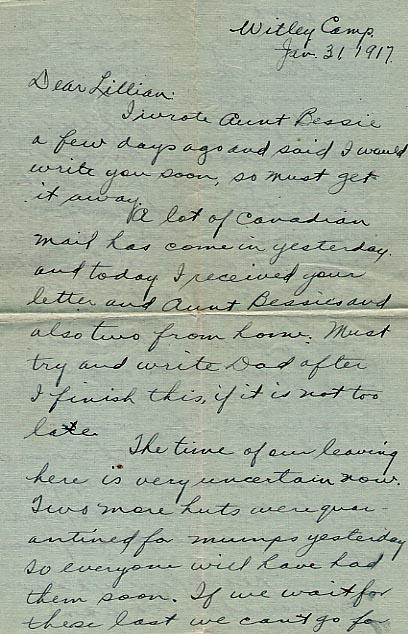 Witley Camp.
Jan. 31, 1917.
Dear Lillian:
I wrote Aunt Bessie
a few days ago and said I would
write you soon, so must get
it away.
A lot of Canadian
mail has come in yesterday.
and today I received your
letter and Aunt Bessies and
also two from home. Must
try and write Dad after
I finish this, if it is not too
late.
The time of our leaving
here is very uncertain now.
Two more huts were quar-
antined for mumps yesterday
so everyone will have had
them soon. If we wait for
these last we can't go for